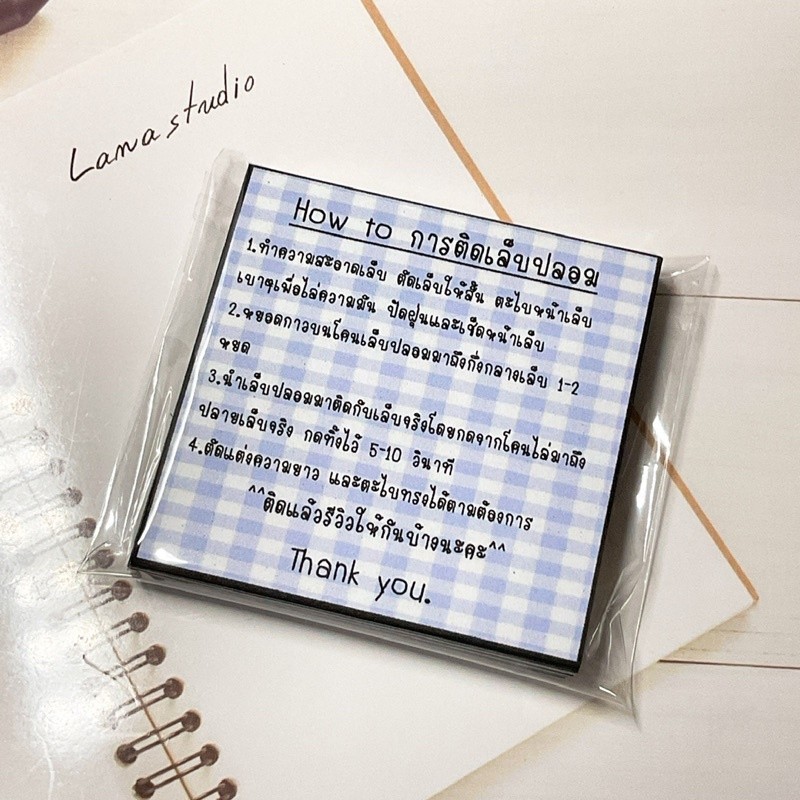 Lana studio
How to การติดเล็บปลอม
1.ทำความสะอาดเล็บ ตัดเล็บให้สั้น ตะไบหน้าเล็บ
เบาๆเพื่อไล่ความมัน ปัดฝุ่นและเช็ดหน้าเล็บ
2.หยอดกาวบนโคนเล็บปลอมมาถึงกึ่งกลางเล็บ 1-2
หยด
3.นำเล็บปลอมมาติดกับเล็บจริงโดยกดจากโคนไล่มาถึง
ปลายเล็บจริง กดทิ้งไว้ 5-10 วินาที
4.ตัดแต่งความยาว และตะไบทรงได้ตามต้องการ
^^ติดแล้วรีวิวให้กันบ้างนะคะ^^
Thank you.